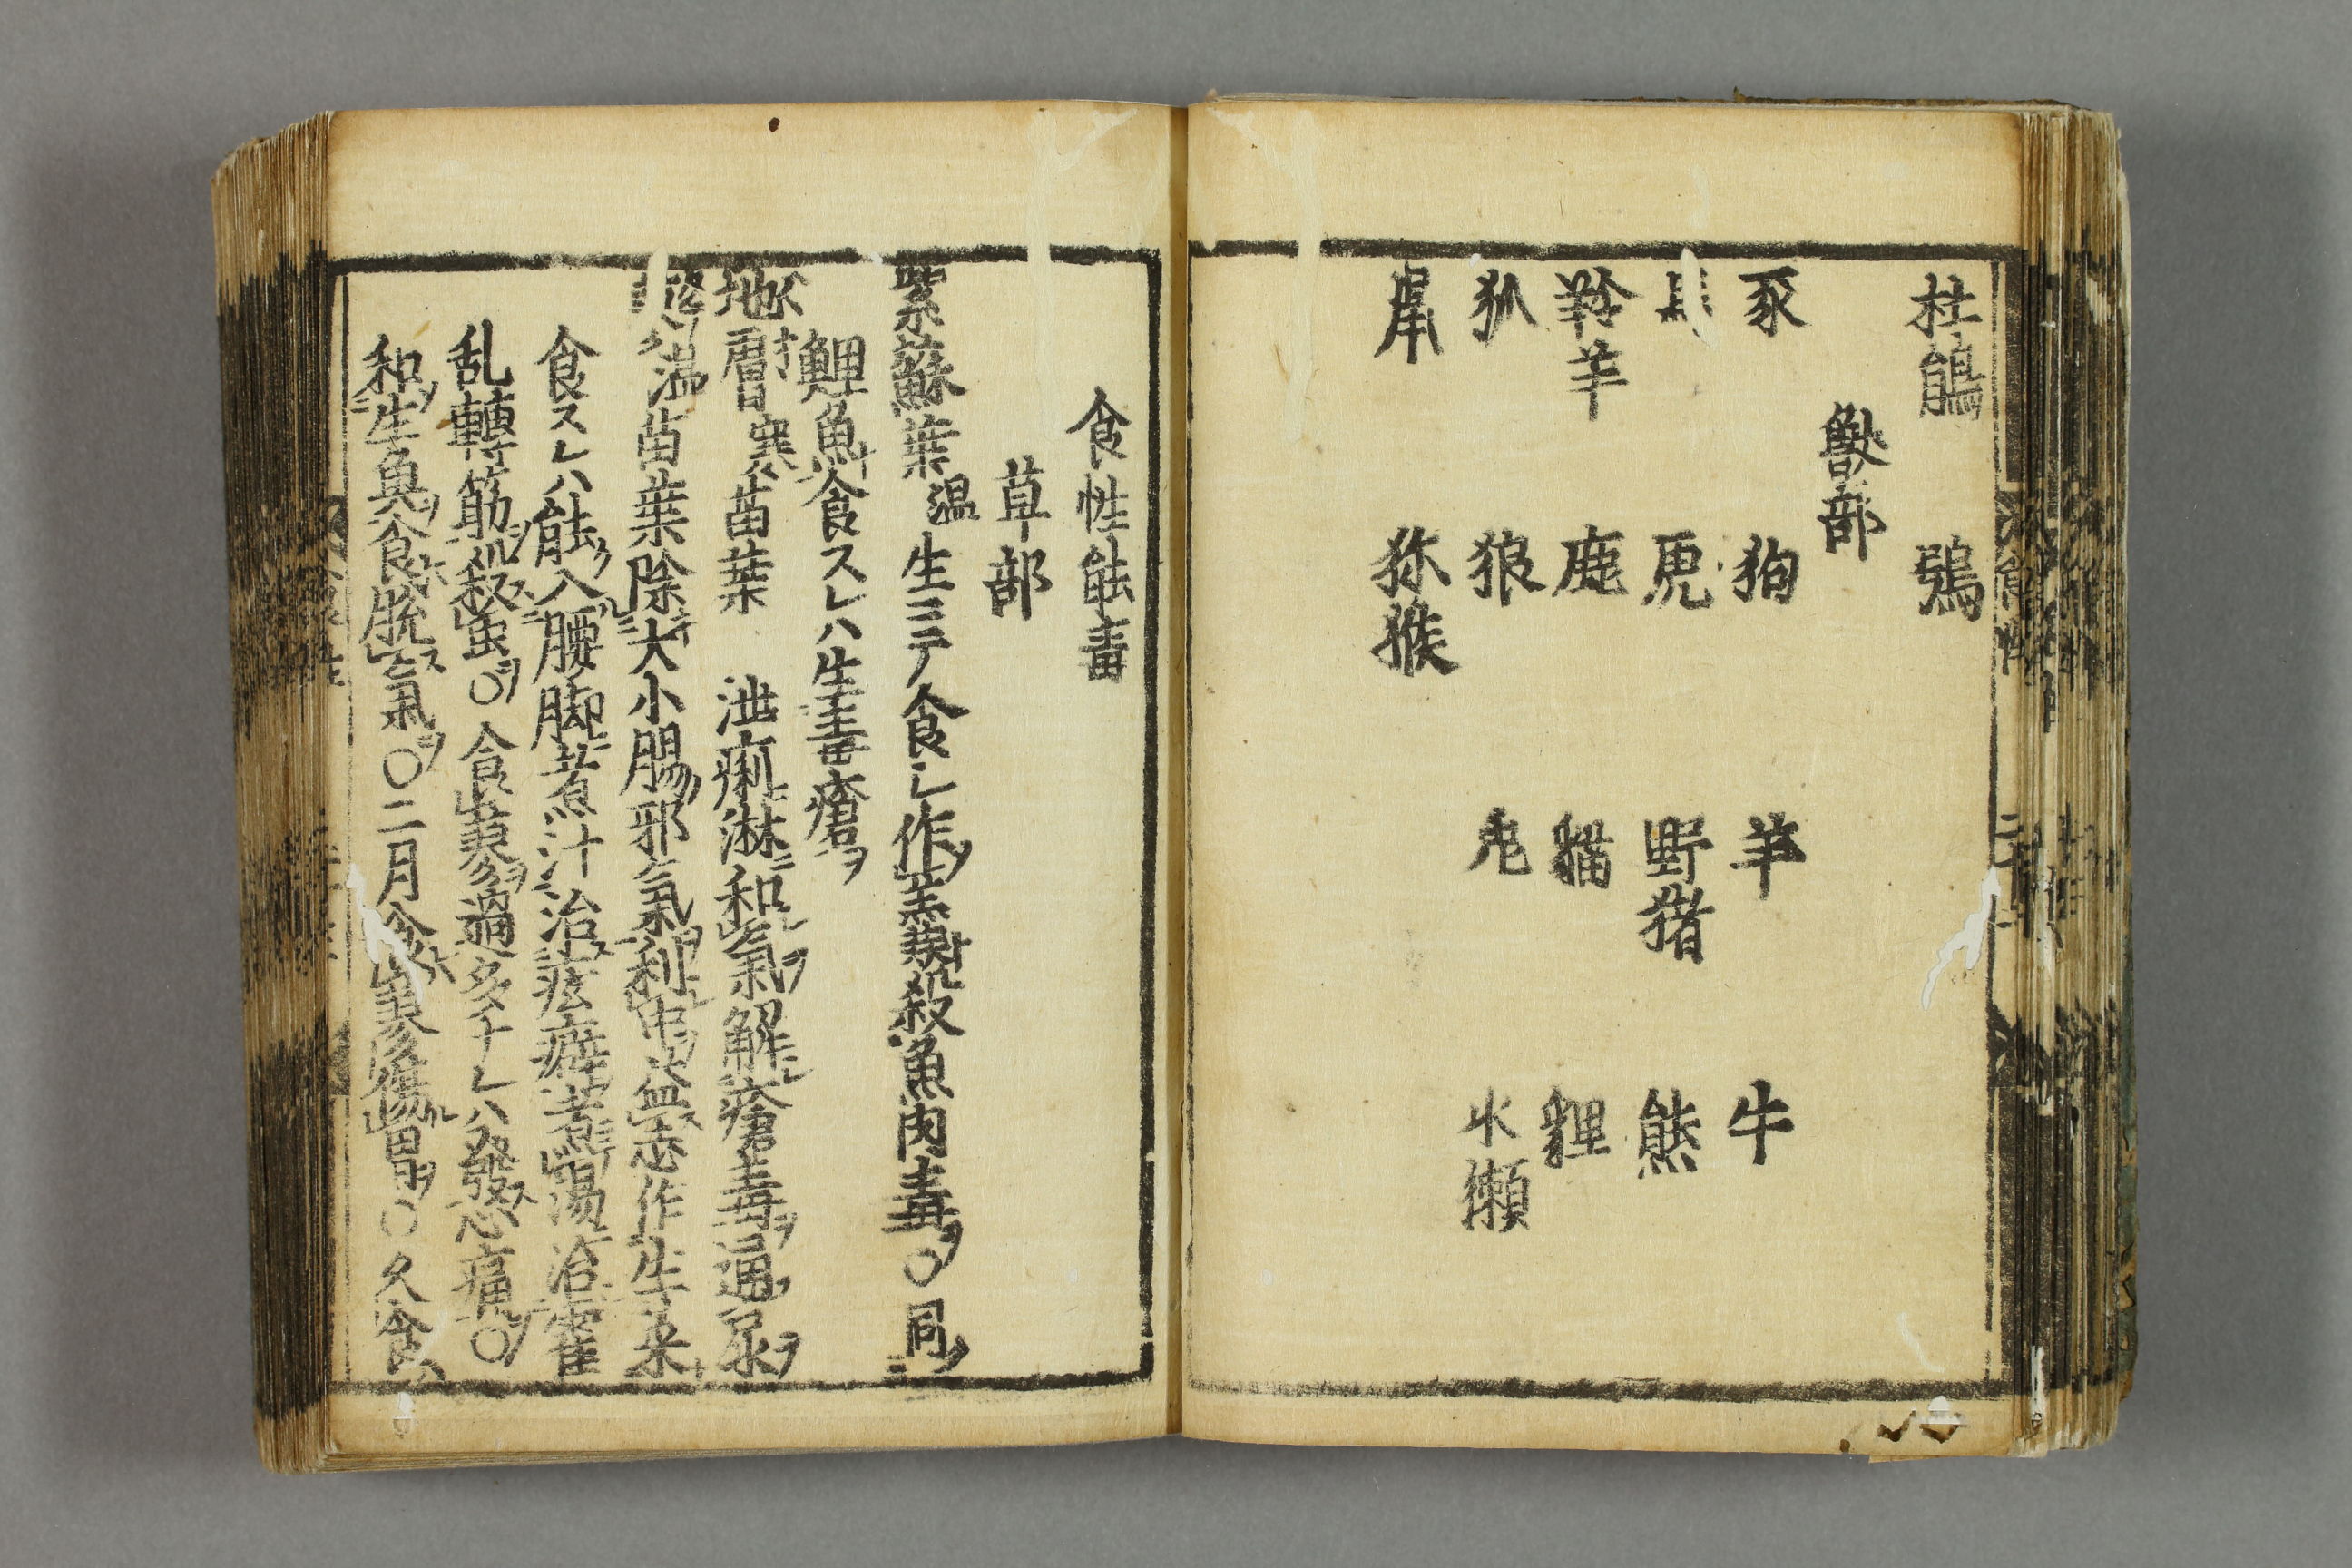 杜鵑 鴞
獸部
豕 狗 羊 牛
野猪 熊
羚羊 鹿 猫 貍
狐 狼 兎 水獺
犀 猕猴
食性能毒
草部
紫蘇葉温 生ニテ食シ作羹殺魚肉毒○同
鯉魚食スレハ生毒瘡ヲ
地膚寒苗葉 泄痢淋和氣解瘡毒通尿
温苗葉除大小腸邪氣利中益志作生菜
食スレハ能入腰脚煮汁治痃癖煮湯治霍
乱轉筋殺虫○食蓼過多ナレハ發心痛○
和生魚食脱氣○二月食蓼傷胃○久食